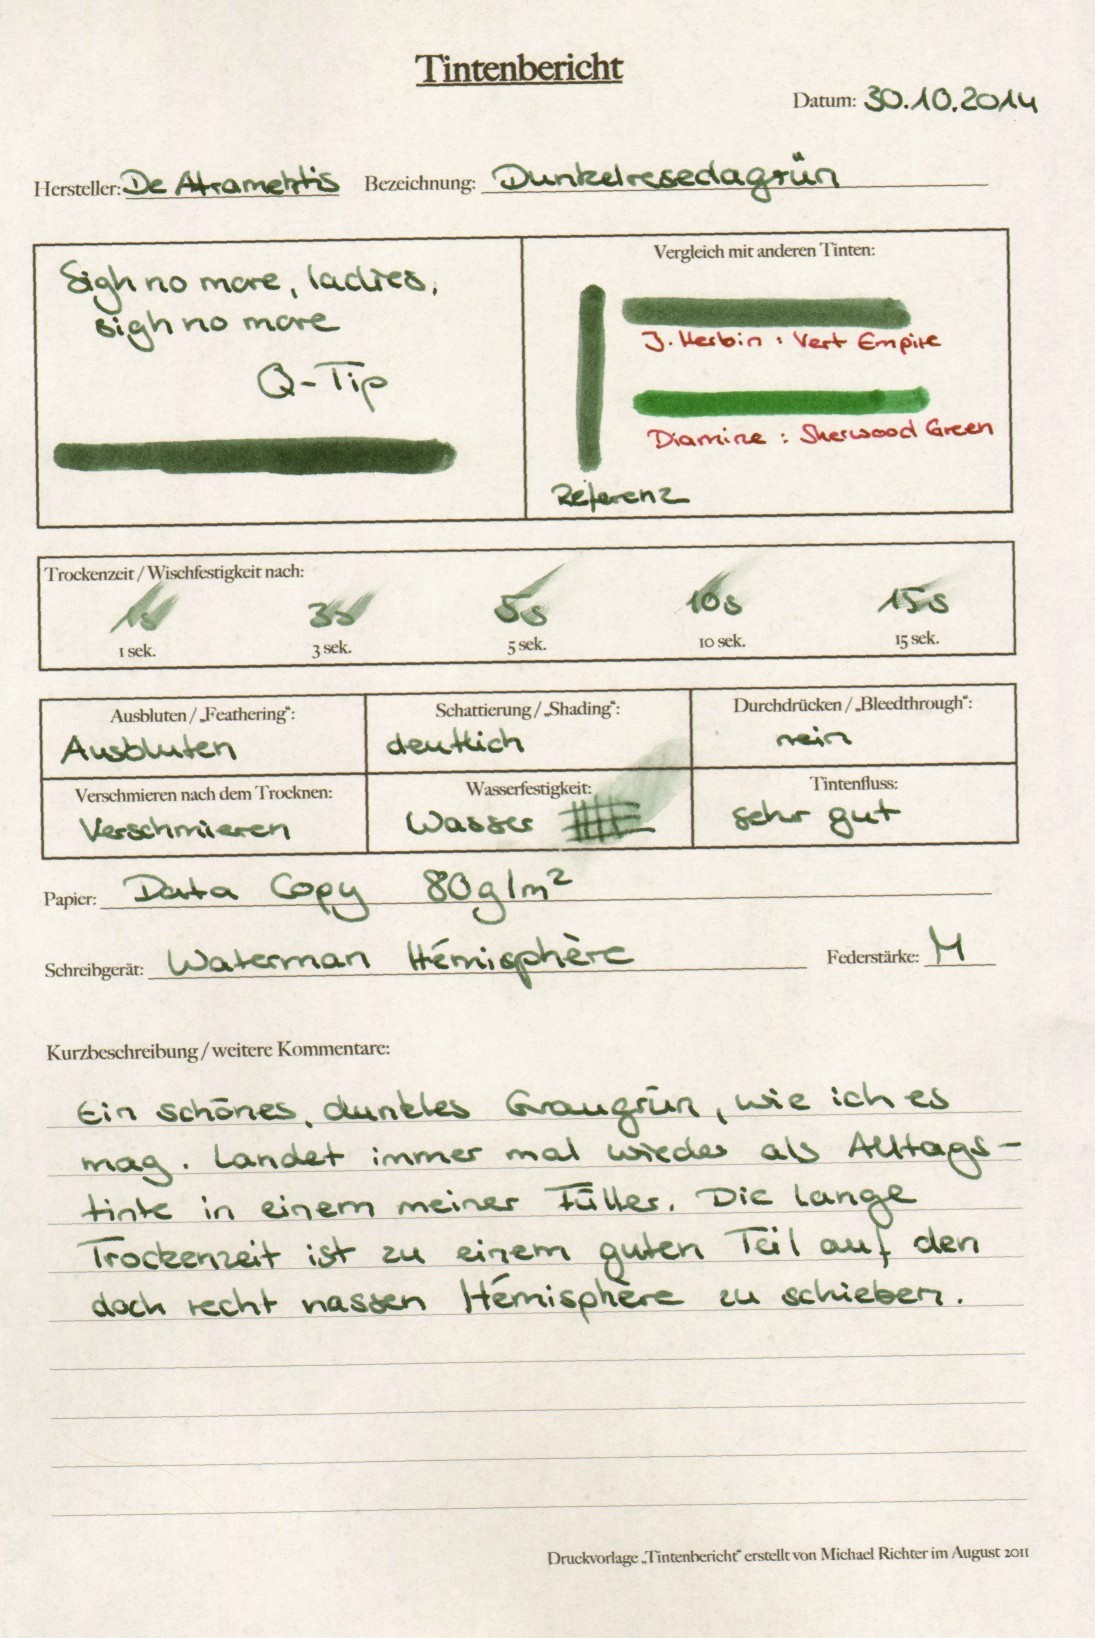 Tintenbericht
Datum: 30.10.2014
Hersteller: De Atramentis Bezeichnung: Dunkelresedagrün
Sigh no more, ladies,
sigh no more
Q-Tip
Vergleich mit anderen Tinten:
J. Herbin : Vert Empire
Diamine : Sherwood Green
Referenz
Trockenzeit / Wischfestigkeit nach:
1s 3s 5s 10s 15s
1 sek. 3 sek. 5 sek. 10 sek. 15 sek.
Ausbluten / „Feathering“: Schattierung / „Shading“: Durchdrücken / „Bleedthrough“:
Ausbluten deutlich nein
Verschmieren nach dem Trocknen: Wasserfestigkeit: Tintenfluss:
Verschmieren Wasser sehr gut
Papier: Data Copy 80g/m²
Schreibgerät: Waterman Hémisphère Federstärke: M
Kurzbeschreibung / weitere Kommentare:
Ein schönes, dunkles Graugrün, wie ich es
mag. Landet immer mal wieder als Alltags-
tinte in einem meiner Füller. Die lange
Trockenzeit ist zu einem guten Teil auf den
doch recht nassen Hémisphère zu schieben.
Druckvorlage „Tintenbericht“ erstellt von Michael Richter im August 2011